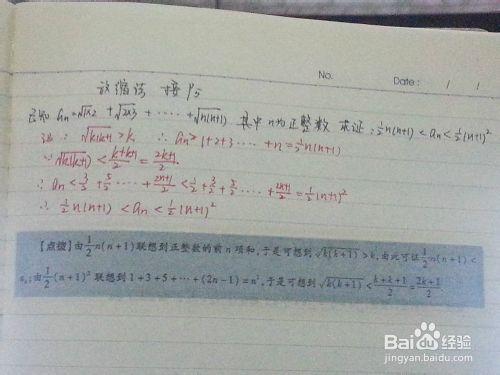 No.
Date: / /
放缩法 接P5
已知 an=√1×2 + √2×3 + ······ + √n(n+1) 其中n为正整数 求证: ½n(n+1) < an < ½(n+1)²
证: ∵ √k(k+1) > k ∴ an > 1+2+3 ······ +n = ½n(n+1)
∵ √k(k+1) < (k+k+1)/2 = (2k+1)/2
∴ an < 3/2 + 5/2 ······ + (2n+1)/2 < 1/2 + 3/2 + 5/2 ······ + (2n+1)/2 = ½(n+1)²
∴ ½n(n+1) < an < ½(n+1)²
【点拨】由½n(n+1)联想到正整数的前n项和,于是可想到√k(k+1)>k,由此可证½n(n+1)<
an;由½(n+1)²联想到1+3+5+···+(2n-1)=n²,于是可想到√k(k+1)<(k+k+1)/2=(2k+1)/2
Baidu经验
jingyan.baidu.com